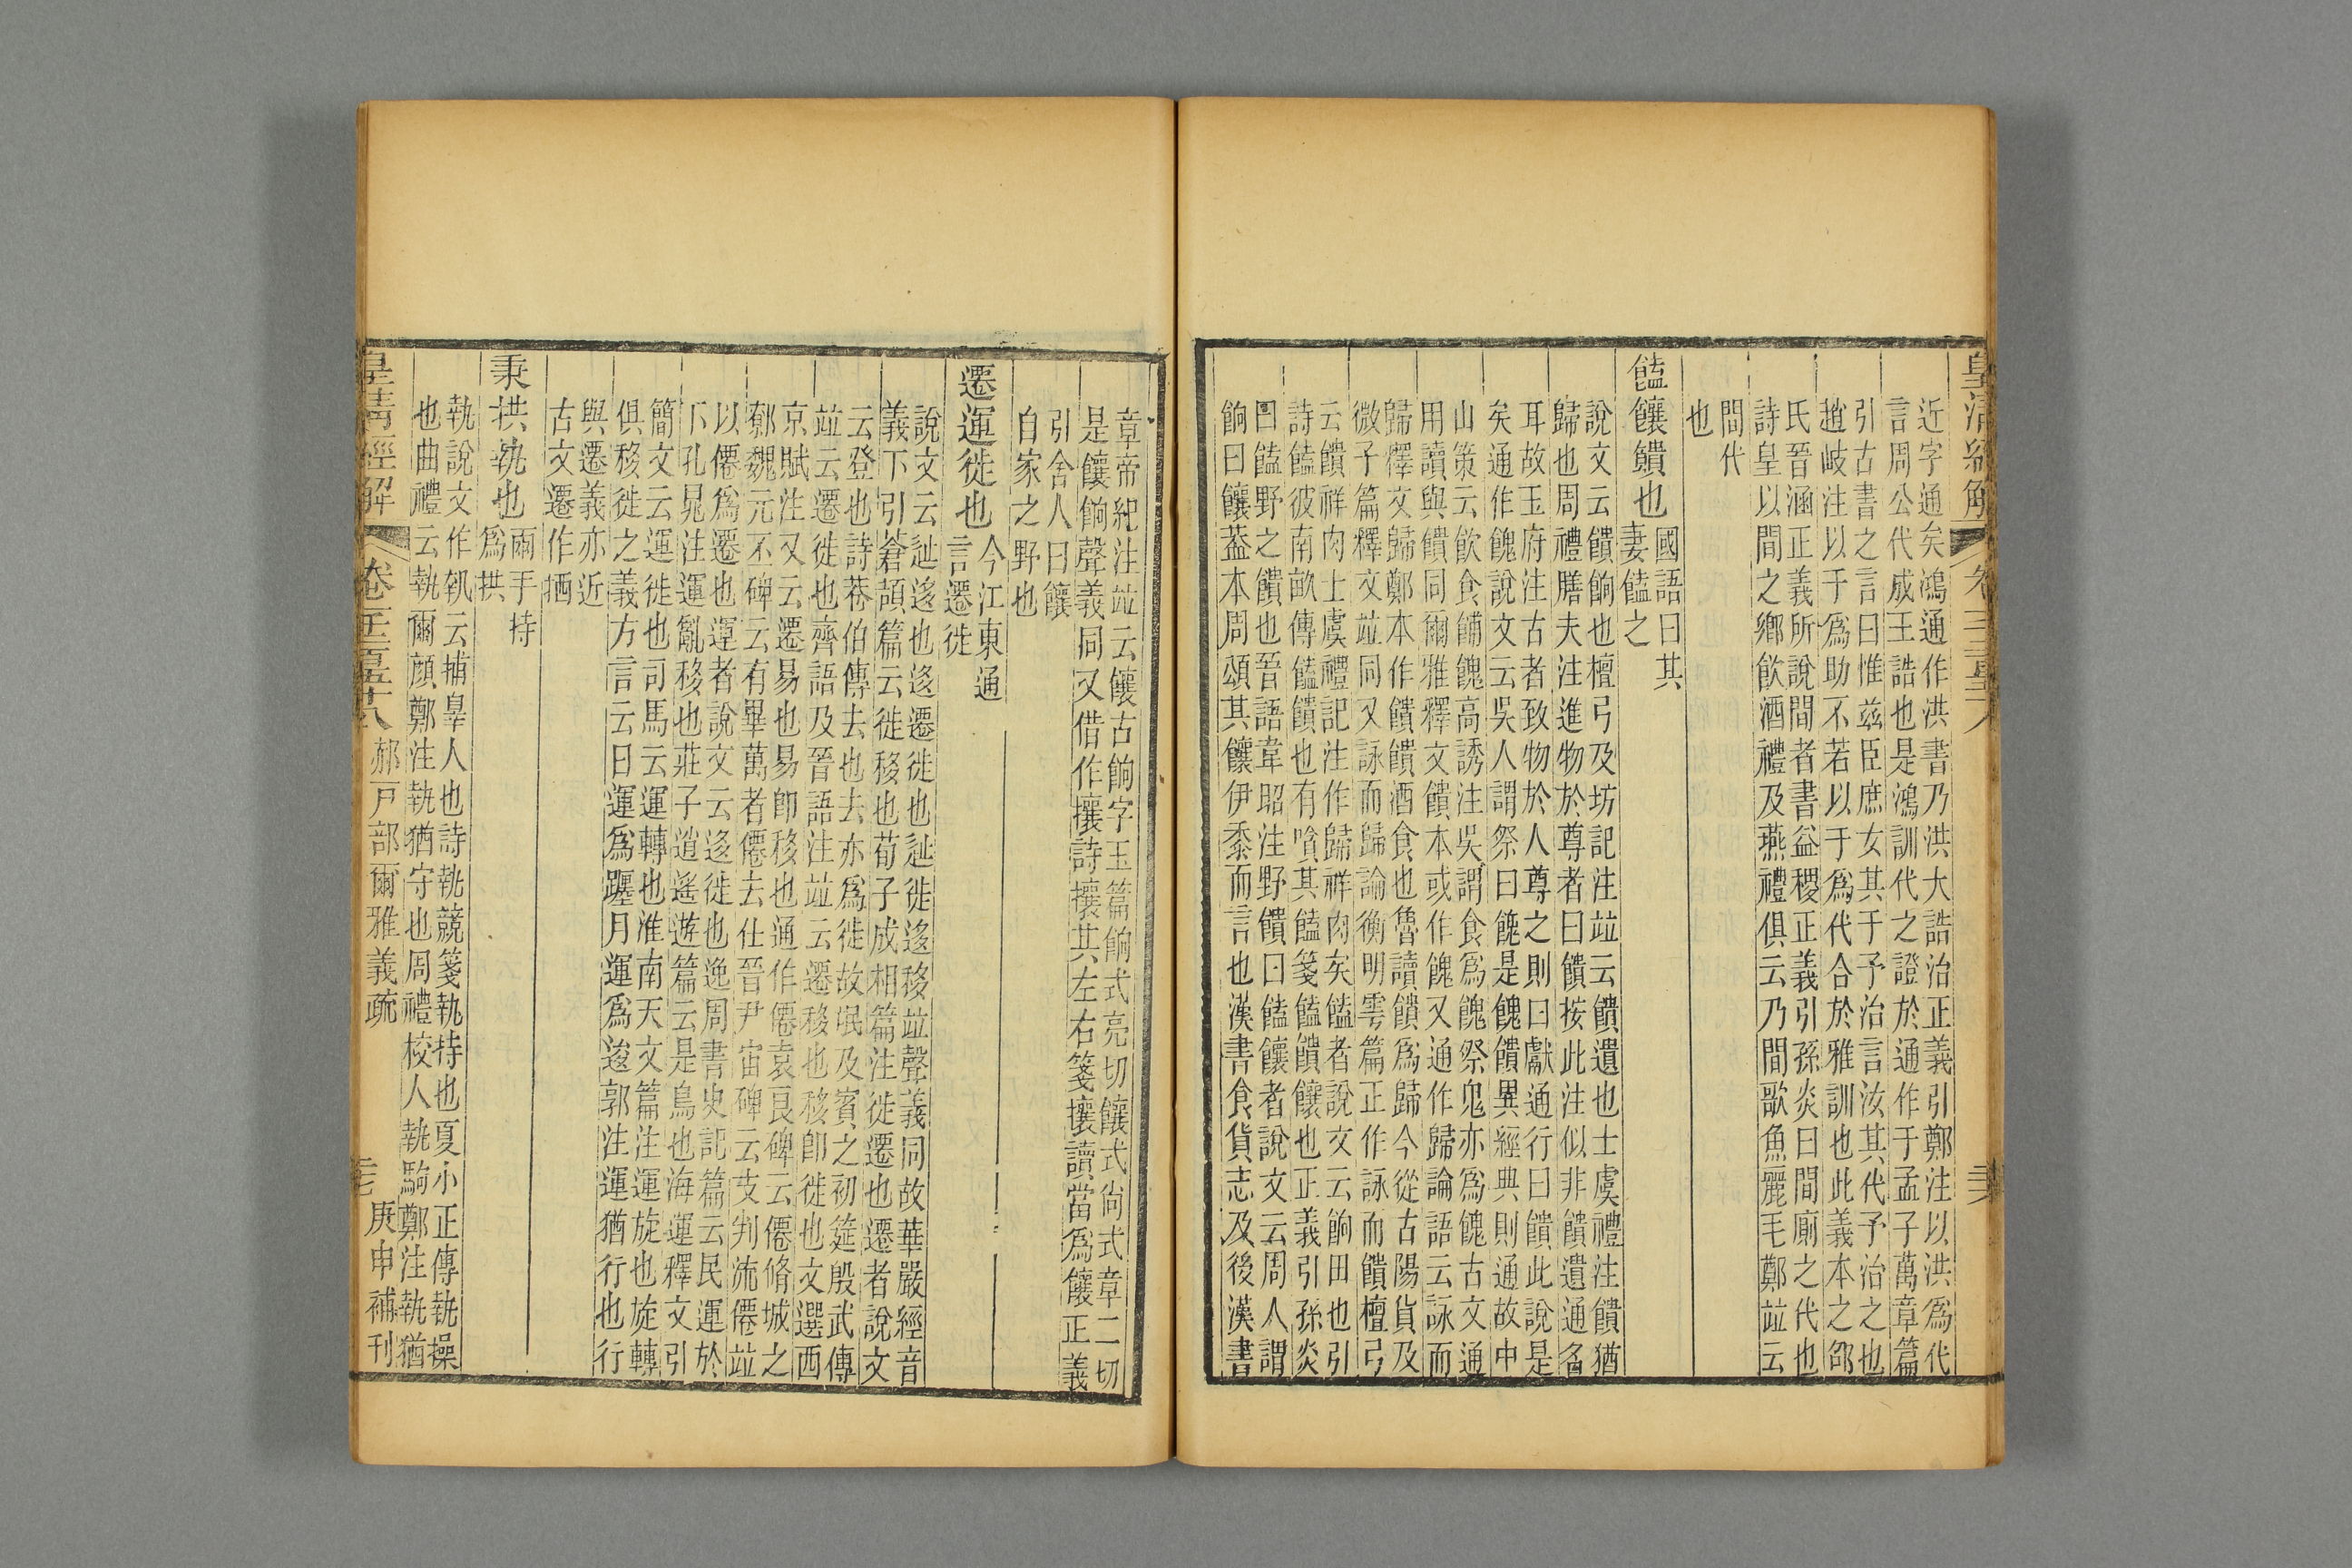 皇清經解
近字通矣鴻通作洪書乃洪大誥治正義引鄭注以洪爲代
言周公代成王誥也是鴻訓代之證於通作于孟子萬章篇
引古書之言曰惟兹臣庶女其于予治言汝其代予治之也
趙岐注以于爲助不若以于爲代合於雅訓也此義本之郃
氏晉涵正義所說間者書益稷正義引孫炎曰間廁之代也
詩皇以間之鄉飲酒禮及燕禮俱云乃間歌魚麗毛鄭竝云
間代
也
饁饟饋也
國語曰其
妻饁之
說文云饋餉也檀弓及坊記注竝云饋遺也士虞禮注饋猶
歸也周禮膳夫注進物於尊者曰饋按此注似非饋遺通名
耳故玉府注古者致物於人尊之則曰獻通行曰饋此說是
矣通作餽說文云吳人謂祭曰餽是餽饋異經典則通故中
山策云飲食餔餽高誘注吳謂食爲餽祭鬼亦爲餽古文通
用讀與饋同爾雅釋文饋本或作餽又通作歸論語云詠而
歸釋文歸鄭本作饋饋酒食也魯讀饋爲歸今從古陽貨及
微子篇釋文竝同又詠而歸論衡明雩篇正作詠而饋檀弓
云饋祥肉士虞禮記注作歸祥肉矣饁者說文云餉田也引
詩饁彼南畝傳饁饋也有嗿其饁箋饁饋饟也正義引孫炎
曰饁野之饋也晉語韋昭注野饋曰饁饟者說文云周人謂
餉曰饟葢本周頌其饟伊黍而言也漢書食貨志及後漢書
章帝紀注竝云饟古餉字玉篇餉式亮切饟式尙式章二切
是饟餉聲義同又借作攘詩攘其左右箋攘讀當爲饟正義
引舍人曰饟
自家之野也
遷運徙也
今江東通
言遷徙
說文云𨑭迻也迻遷徙也𨑭徙迻移竝聲義同故華嚴經音
義下引蒼頡篇云徙移也荀子成相篇注徙遷也遷者說文
云登也詩巷伯傳去也去亦爲徙故氓及賓之初筵殷武傳
竝云遷徙也齊語及晉語注竝云遷移也移卽徙也文選西
京賦注又云遷易也易卽移也通作僊袁良碑云僊脩城之
鄣魏元丕碑云有畢萬者僊去仕晉尹宙碑云支判流僊竝
以僊爲遷也運者說文云迻徙也逸周書史記篇云民運於
下孔晁注運亂移也莊子逍遙遊篇云是鳥也海運釋文引
簡文云運徙也司馬云運轉也淮南天文篇注運旋也旋轉
俱移徙之義方言云日運爲躔月運爲逡郭注運猶行也行
與遷義亦近
古文遷作㧗
秉拱執也
兩手持
爲拱
執說文作𡙕云捕辠人也詩執競箋執持也夏小正傳執操
也曲禮云執爾顔鄭注執猶守也周禮校人執駒鄭注執猶
皇清經解
郝戸部爾雅義疏
庚申補刊